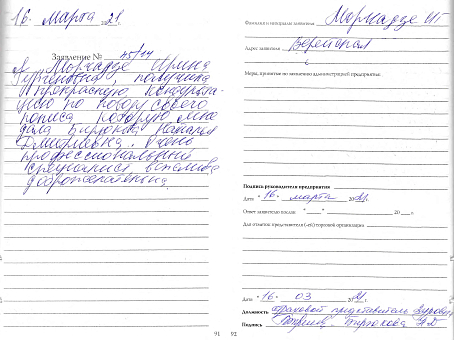 16. Марта 2021.
Заявление № 45/14
Я Моргадзе Ирина
получила
прекрасную консульта-
цию по поводу своего
полиса, которую мне
дала Бирюкова Наталья
Дмитриевна. Очень
профессиональный
специалист вежлива
доброжелательна.
91
Фамилия и инициалы заявителя
Адрес заявителя
Меры, принятые по заявлению администрацией предприятия:
Подпись руководителя предприятия
Дата "16." марта 2021г.
Ответ заявителю послан "___" ___ 20__ г.
Для отметки представителя (-ей) торговой организации
Дата "16." 03 2021г.
Должность страховой представитель
Подпись Бирюкова Н.Д
92